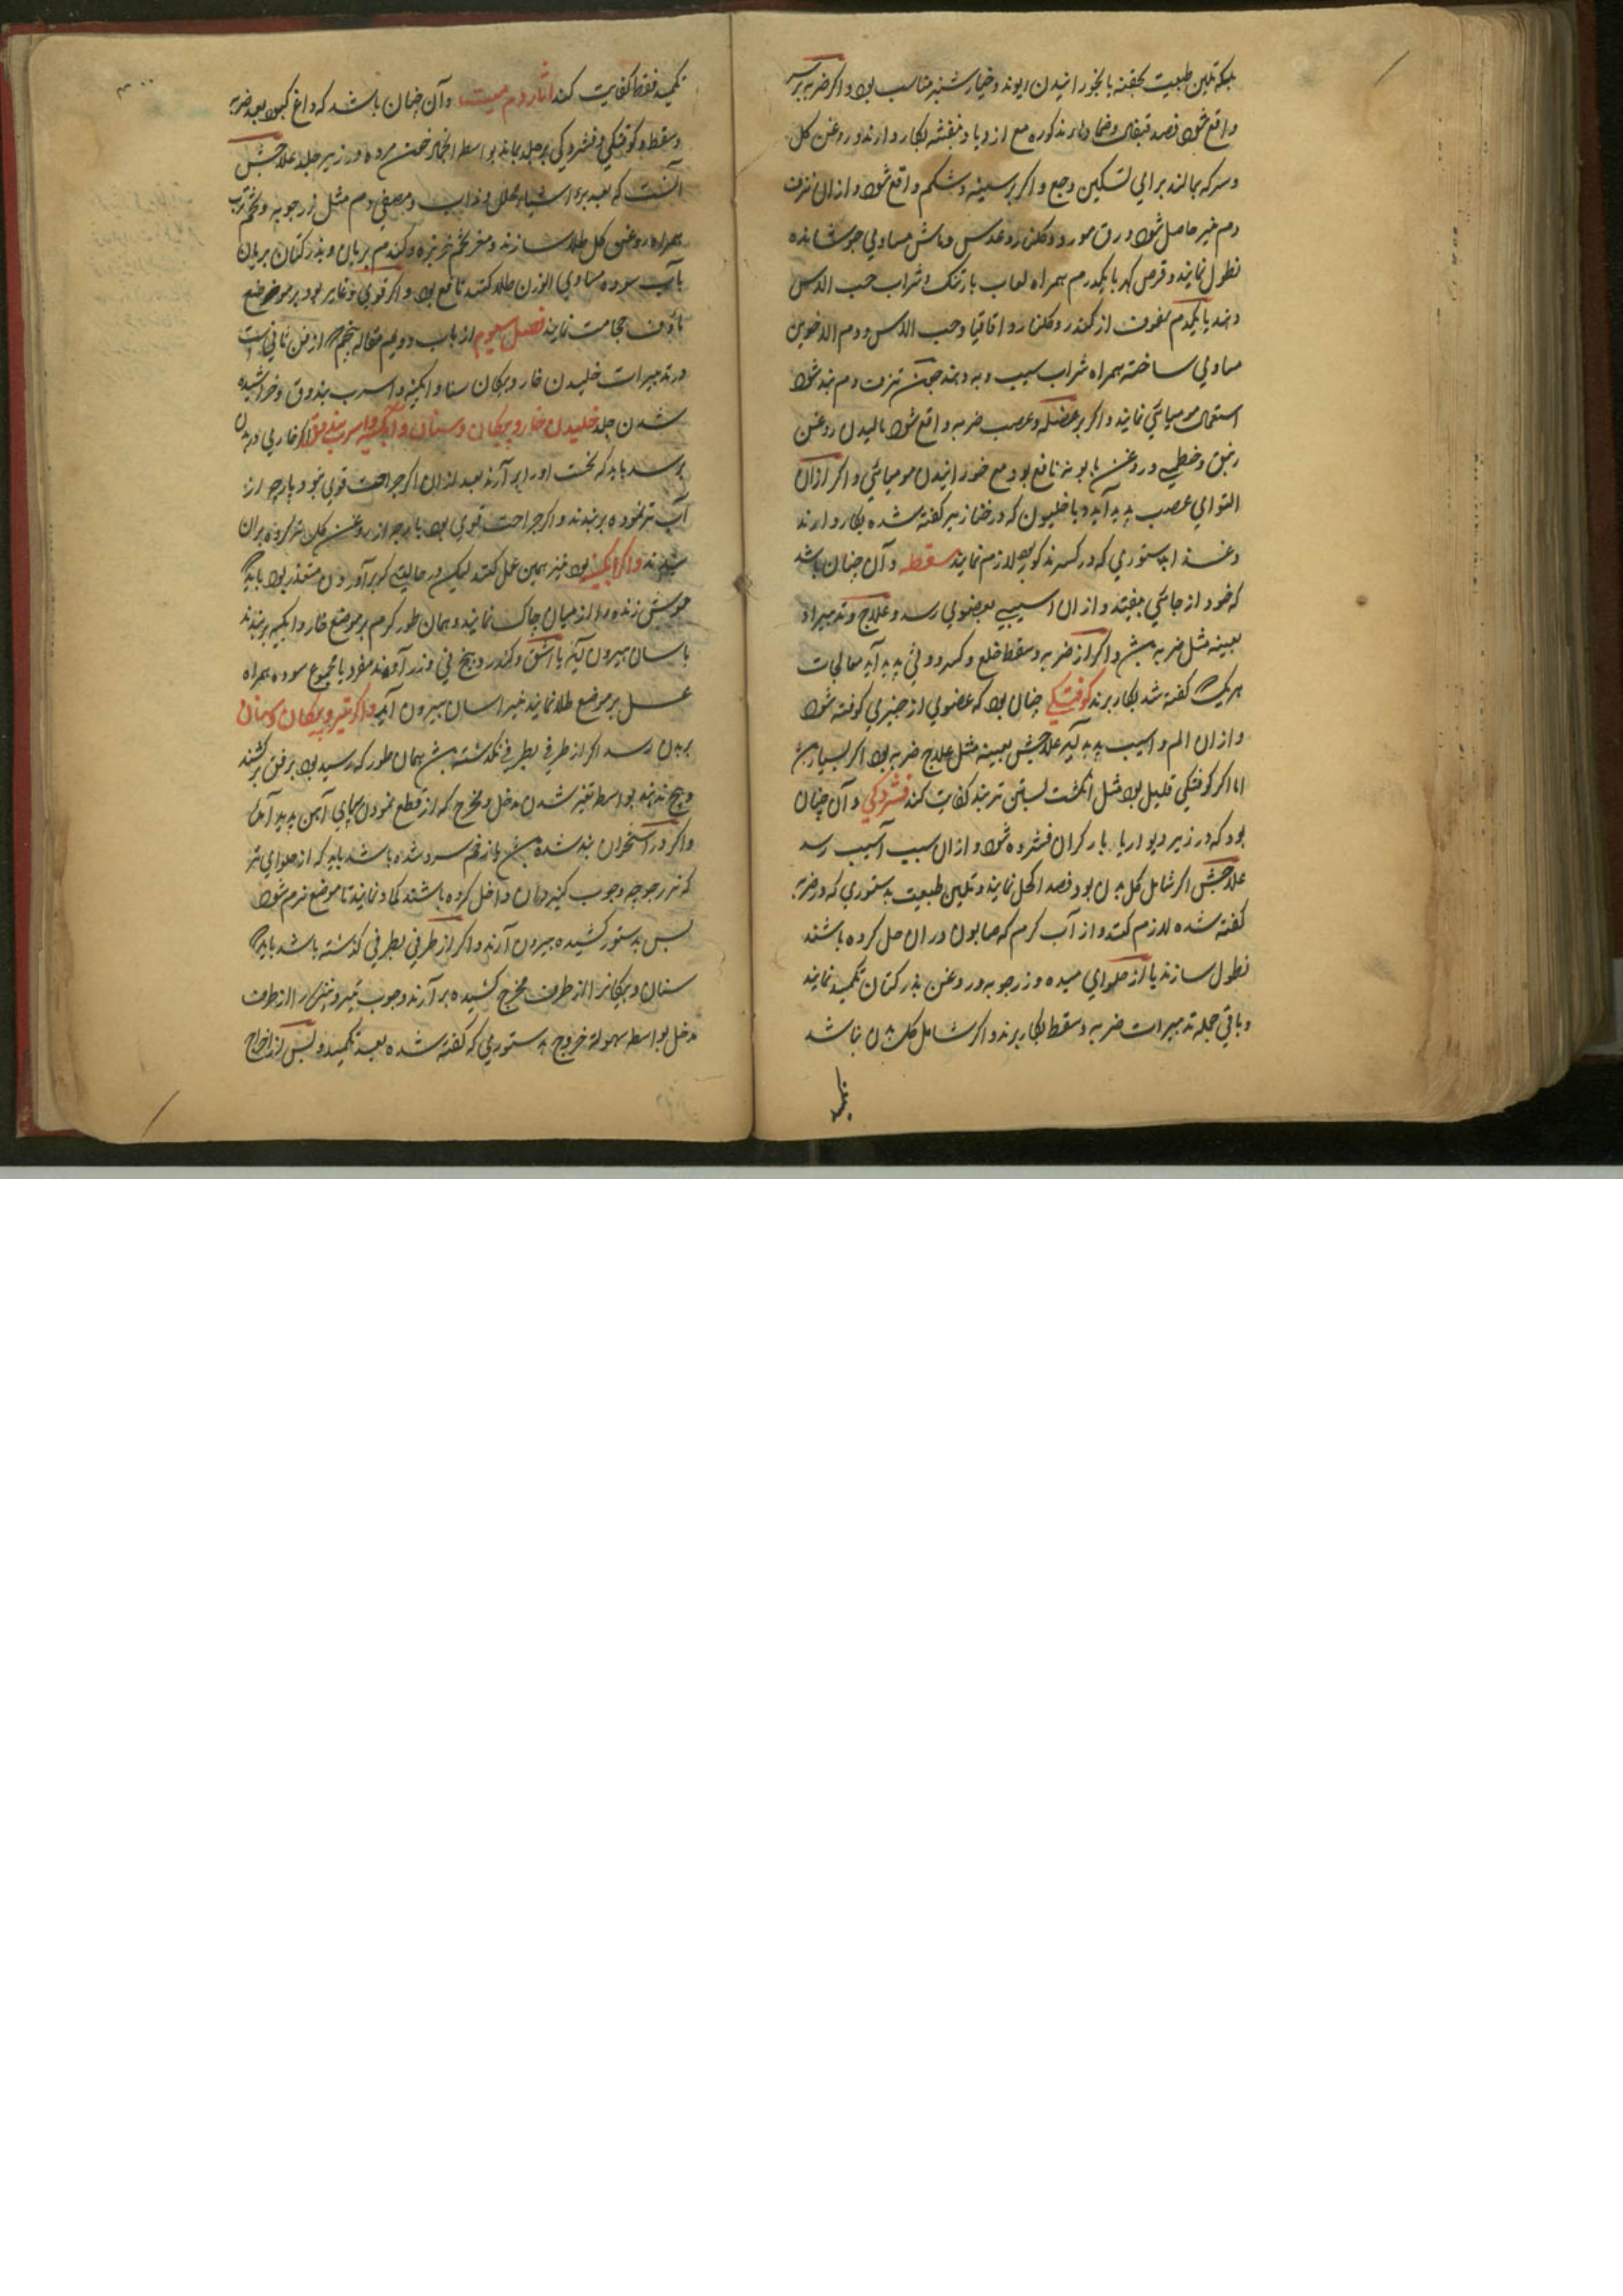 بلکه تلیین طبیعت بحقنه یا بخورانیدن ریوند و خیارشنبر مناسب بود و اکر ضربه بر سر
واقع شود فصد قیفال و ضماد مذکوره مع ازدیاد بنفشه بکار دارند و روغن کل
و سرکه بمالند برای تسکین وجع و اکر بر سینه و شکم واقع شود و ازان نزف
دم نیز حاصل شود ورق مورد و کلنار و عدس و ماش مساوی جوشانده
نطول نمایند و قرص کهربا یکدرم همراه لعاب بارتنک و شراب حب الاس
دهند یا یکدرم سفوف از کندر و کلنار و اقاقیا و حب الاس و دم الاخوین
مساوی ساخته همراه شراب سیب و به دهند چون نزف دم بند شود
استعمال مومیائی نمایند و اکر بر عضله و عصب ضربه واقع شود مالیدن روغن
زنبق و خطمی و روغن بابونه نافع بود مع خورانیدن مومیائی و اکر ازان
التوای عصب پدید آید دیاخلیون که در خنازیر کفته شده بکار دارند
و غذا بدستوری که در کسر مذکور بود لازم نمایند سقطه و آن چنان باشد
که خود از جائی بیفتد و ازان آسیبی بعضوی رسد و علاج و تدبیر او
بعینه مثل ضربه بش و اکر از ضربه و سقطه خلع و کسر و وثی پدید آید معالجات
هریک کفته شد بکار برند کوفتکی چنان بود که عضوی از چیزی کوفته شود
و ازان الم و آسیب پدید آید علاجش بعینه مثل علاج ضربه بود اکر بسیار بش
اما اکر کوفتکی قلیل بود مثل انکشت بستن تر بند کفایت کند فشردکی و آن چنان
بود که در زیر دیوار یا بار کران فشرده شود و ازان سبب آسیب رسد
علاجش اکر شامل کل بدن بود فصد اکحل نمایند و تلیین طبیعت بدستوری که در ضربه
کفته شده لازم کنند و از آب کرم که صابون دران حل کرده باشند
نطول سازند یا از حلوای میده و زرجوبه و روغن بذر کتان تکمید نمایند
و باقی جمله تدبیرات ضربه و سقطه بکار برند و اکر شامل کل بدن نباشد
تکمید فقط کفایت کند آثار دم میت و آن چنان باشد که داغ کبود بعد ضربه
و سقطه و کوفتکی و فشردکی بر جلد بماند بواسطه انجماد خون مرده در زیر جلد علاجش
آنست که بعد برء اشیاء محلل و جاذب و مصفی دم مثل زرجوبه و تخم ترب
همراه روغن کل طلا سازند و مغز تخم خربزه و کندم بریان و بذر کتان بریان
بآب سوده مساوی الوزن طلا کنند نافع بود و اکر قوی و غایر بود بر موضع
ماؤف حجامت نمایند فصل سیوم از باب دویم مقاله پنجم از فن ثانی است
در تدبیرات خلیدن خار و پیکان و سنان و آبکینه و اسرب بندوق و خراشیده
شدن جلد خلیدن خار و پیکان و سنان و آبکینه و اسرب بندوق اکر خاری در بدن
برسد باید که نخست او را برآرند بعد ازان اکر جراحت قوی نبود پارچه از
آب تر نموده بربندند و اکر جراحت قوی بود پارچه از روغن کل تر کرده بران
بندند و اکر آبکینه بود نیز همین عمل کنند لیکن در حالیتی که برآوردن متعذر بود باید که
موش زنده را از میان چاک نمایند و همان طور کرم بر موضع خار و آبکینه بربندند
باسان بیرون آید یا اشق و کندر و بیخ نی و زراوند مفرد یا مجموع سوده همراه
عسل بر موضع طلا نمایند نیز باسان بیرون آید و اکر تیر و پیکان و سنان
ببدن رسد اکر از طرفی بطرفی نکذشته بش همان طور که رسید بود برفق برکشند
و پیچ ندهند بواسطه تغیر شدن مدخل و مخرج که از قطع نمودن بجای آهن پدید آمده
و اکر در استخوان بند شده بش یا زخم سرد شده باشد باید که از حلوای تر
که زرجوبه و جوب کنیر دران داخل کرده باشند تکاد نمایند تا موضع نرم شود
پس بدستور کشیده بیرون آرند و اکر از طرفی بطرفی کذشته باشد باید که
سنان و پیکانرا از طرف مخرج کشیده برآرند و چوب تیر و نیزه را از طرف
مدخل بواسطه سهولة خروج بدستوری که کفته شده بعد تکمید و پس از اخراج